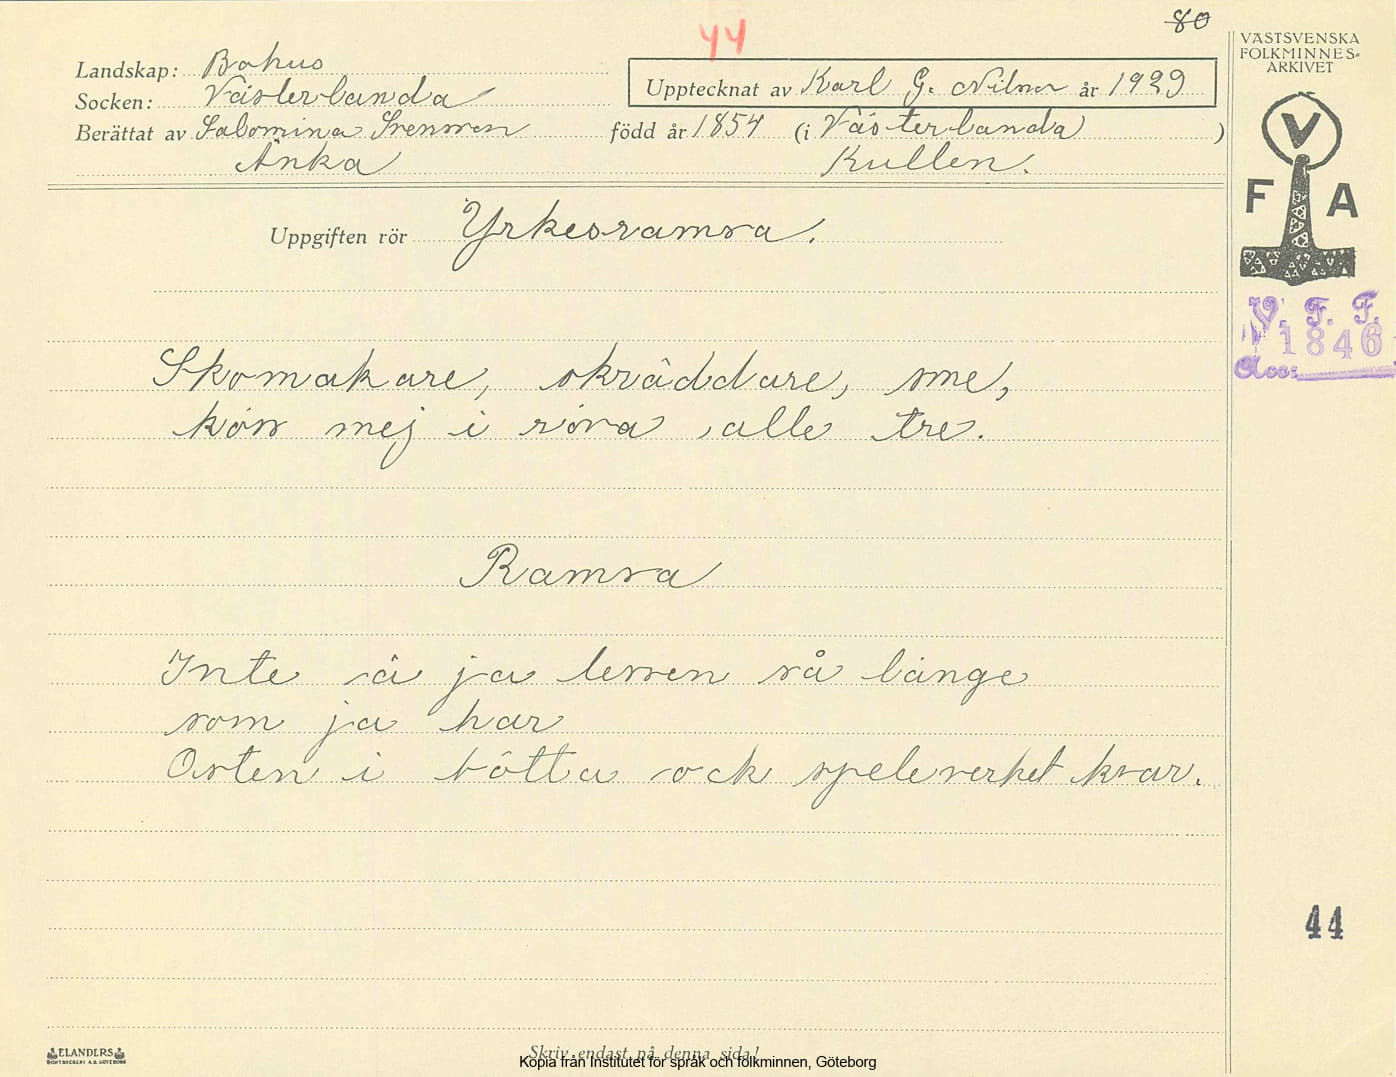 80
44
VÄSTSVENSKA
FOLKMINNES-
ARKIVET
Landskap: Bohus
Socken: Västerlanda
Upptecknat av Karl G. Nilson år 1929
Berättat av Salomina Svensson född år 1854 (i Västerlanda )
Änka Kullen.
V
F A
Uppgiften rör Yrkesramsa.
V. F. F.
1846
Acc:
Skomakare, skräddare, sme,
köss mej i röva alle tre.
Ramsa
Inte ä ja lessen så länge
som ja har
Osten i bôtta ock speleverket kvar.
44
ELANDERS
BOKTRYCKERI A.B. GÖTEBORG
Skriv endast på denna sida!
Kopia från Institutet för språk och folkminnen, Göteborg